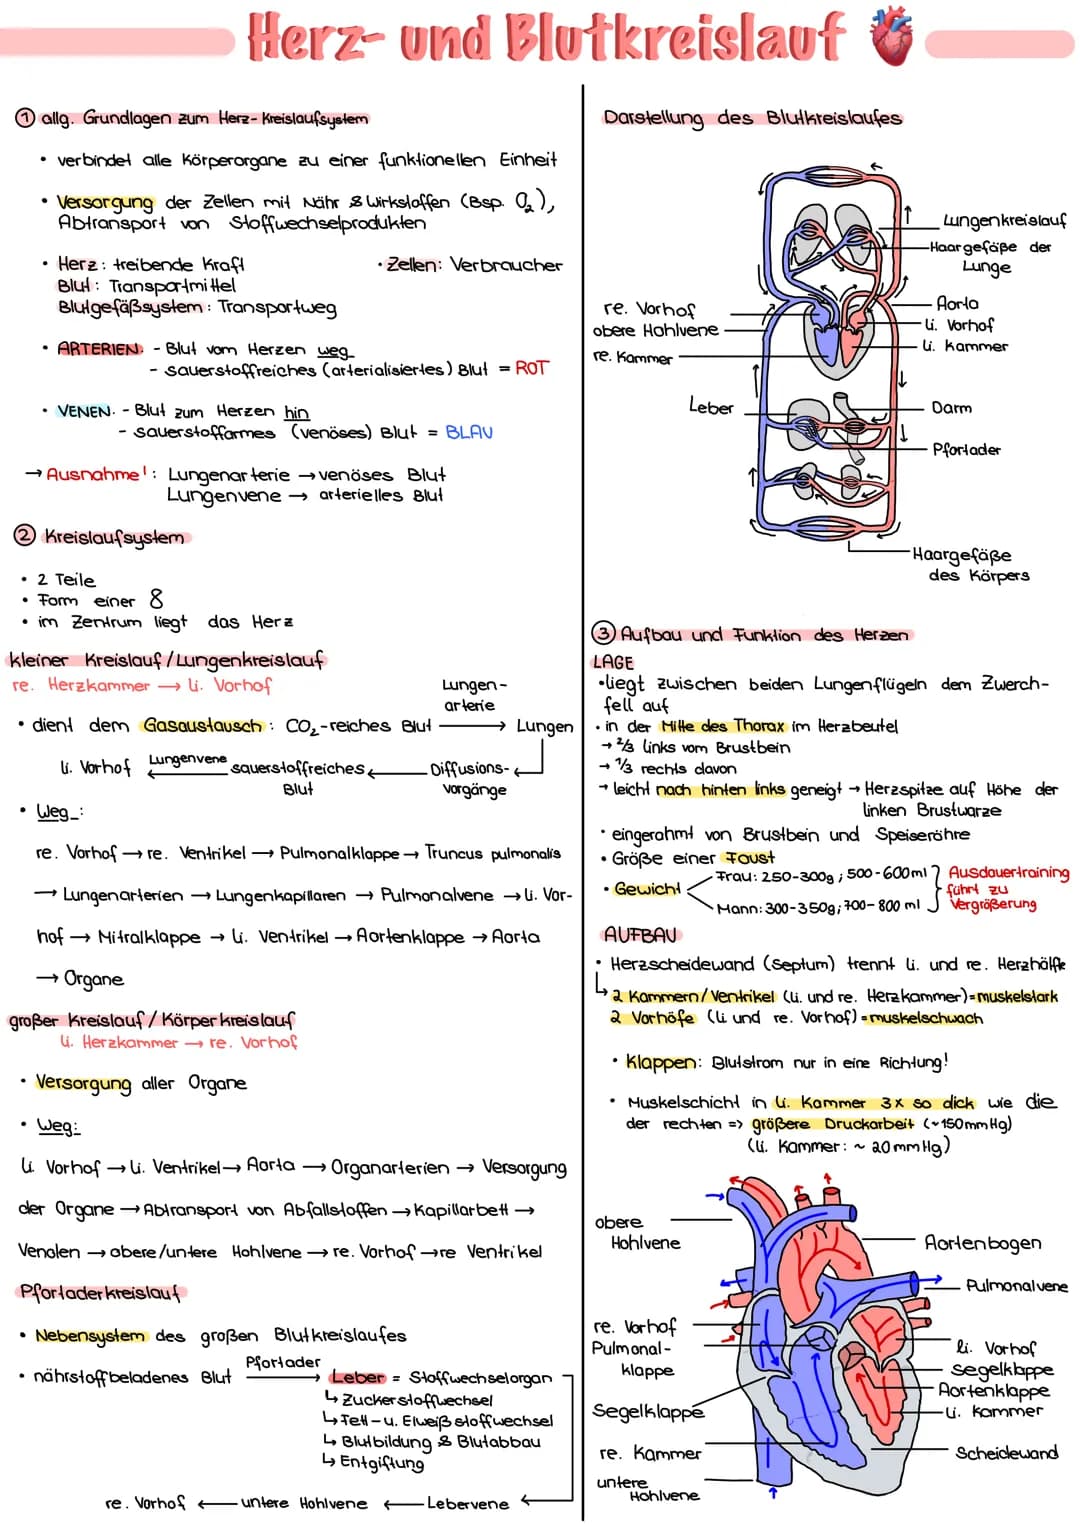 Herz- und Blutkreislauf
① allg. Grundlagen zum Herz-Kreislaufsystem
• verbindet alle Körperorgane zu einer funktionellen Einheit
• Versorgung der Zellen mit Nähr & Wirkstoffen (Bsp. O₂),
Abtransport von Stoffwechselprodukten
• Herz: treibende Kraft
• Zellen: Verbraucher
Blut: Transportmittel
Blutgefäßsystem: Transportweg
• ARTERIEN: - Blut vom Herzen weg
- sauerstoffreiches (arterialisiertes) Blut = ROT
• VENEN: - Blut zum Herzen hin
- sauerstoffarmes (venöses) Blut = BLAU
→ Ausnahme!: Lungenarterie → venöses Blut
Lungenvene → arterielles Blut
② Kreislaufsystem
• 2 Teile
• Form einer 8
• im Zentrum liegt das Herz
kleiner Kreislauf/Lungenkreislauf
re. Herzkammer → li. Vorhof
• dient dem Gasaustausch: CO₂-reiches Blut
Lungen-
arterie
→ Lungen
li. Vorhof ← Lungenvene sauerstoffreiches ← Diffusions-
Blut vorgänge
• Weg:
re. Vorhof → re. Ventrikel → Pulmonalklappe → Truncus pulmonalis
→ Lungenarterien → Lungenkapillaren → Pulmonalvene → li. Vor-
hof → Mitralklappe → li. Ventrikel → Aortenklappe → Aorta
→ Organe
großer Kreislauf/Körperkreislauf
li. Herzkammer → re. Vorhof
• Versorgung aller Organe
• Weg:
li. Vorhof → li. Ventrikel → Aorta → Organarterien → Versorgung
der Organe → Abtransport von Abfallstoffen → Kapillarbett →
Venolen → obere/untere Hohlvene → re. Vorhof → re Ventrikel
Pfortaderkreislauf
• Nebensystem des großen Blutkreislaufes
• nährstoffbeladenes Blut
Pfortader
→ Leber = Stoffwechselorgan
↳ Zuckerstoffwechsel
↳ Fett-u. Eiweißstoffwechsel
↳ Blutbildung & Blutabbau
↳ Entgiftung
re. Vorhof ← untere Hohlvene ← Lebervene ←
Darstellung des Blutkreislaufes
Lungenkreislauf
Haargefäße der
Lunge
re. Vorhof
obere Hohlvene
re. Kammer
Aorta
li. Vorhof
li. Kammer
Leber
Darm
Pfortader
Haargefäße
des Körpers
③ Aufbau und Funktion des Herzen
LAGE
• liegt zwischen beiden Lungenflügeln dem Zwerch-
fell auf
• in der Mitte des Thorax im Herzbeutel
→ 2/3 links vom Brustbein
→ 1/3 rechts davon
→ leicht nach hinten links geneigt → Herzspitze auf Höhe der
linken Brustwarze
• eingerahmt von Brustbein und Speiseröhre
• Größe einer Faust
• Gewicht
Frau: 250-300g; 500-600ml
Mann: 300-350g; 700-800 ml
Ausdauertraining
führt zu
Vergrößerung
AUFBAU
• Herzscheidewand (Septum) trennt li. und re. Herzhälfte
↳ 2 Kammern/Ventrikel (li. und re. Herzkammer)=muskelstark
2 Vorhöfe (li und re. Vorhof)=muskelschwach
• Klappen: Blutstrom nur in eine Richtung!
• Muskelschicht in li. Kammer 3x so dick wie die
der rechten => größere Druckarbeit (~150mmHg)
(li. Kammer: ~ 20mmHg)
obere
Hohlvene
re. Vorhof
Pulmonal-
klappe
Segelklappe
re. Kammer
untere
Hohlvene
Aortenbogen
Pulmonalvene
li. Vorhof
Segelklappe
Aortenklappe
li. Kammer
Scheidewand